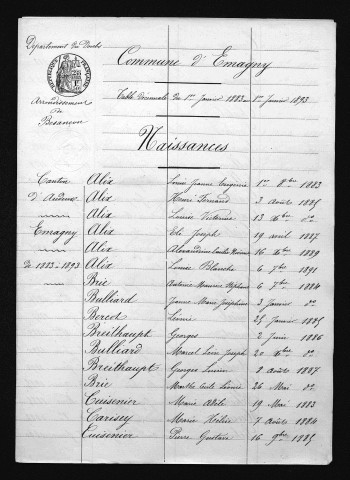 Département du Doubs
Commune d'Emagny
RÉPUBLIQUE FRANÇAISE
Arrondissement
de
Besançon
Table Décennale du 1er Janvier 1883 au 1er Janvier 1893
Naissances
Canton Alix Louise Jeanne Eugénie 1er 8bre 1883
d'Audeux Alix Henri Fernand 2 Août 1885
Alix Louise Victorine 13 do
Emagny Alix Joseph 19 avril 1887
Alix Alexandrine 16 1889
de 1883 à 1893 Alix Louise Blanche 6 7bre 1891
Brie Antoine Maurice Stéphane 6 7bre 1884
Bulliard Jeanne Marie Joséphine 3 Janvier do
Borcot Léonie 25 Janvier 1885
Breithaupt Georges 2 Juin 1886
Bulliard Marcel Joseph 20 do
Breithaupt Georges Lucien 8 Août 1887
Brie Marthe Léonie 26 Mai do
Cuisenier Marie Adèle 19 Mai 1883
Carisey Marie 7 Août 1884
Cuisenier Pierre Gustave 16 9bre 1885